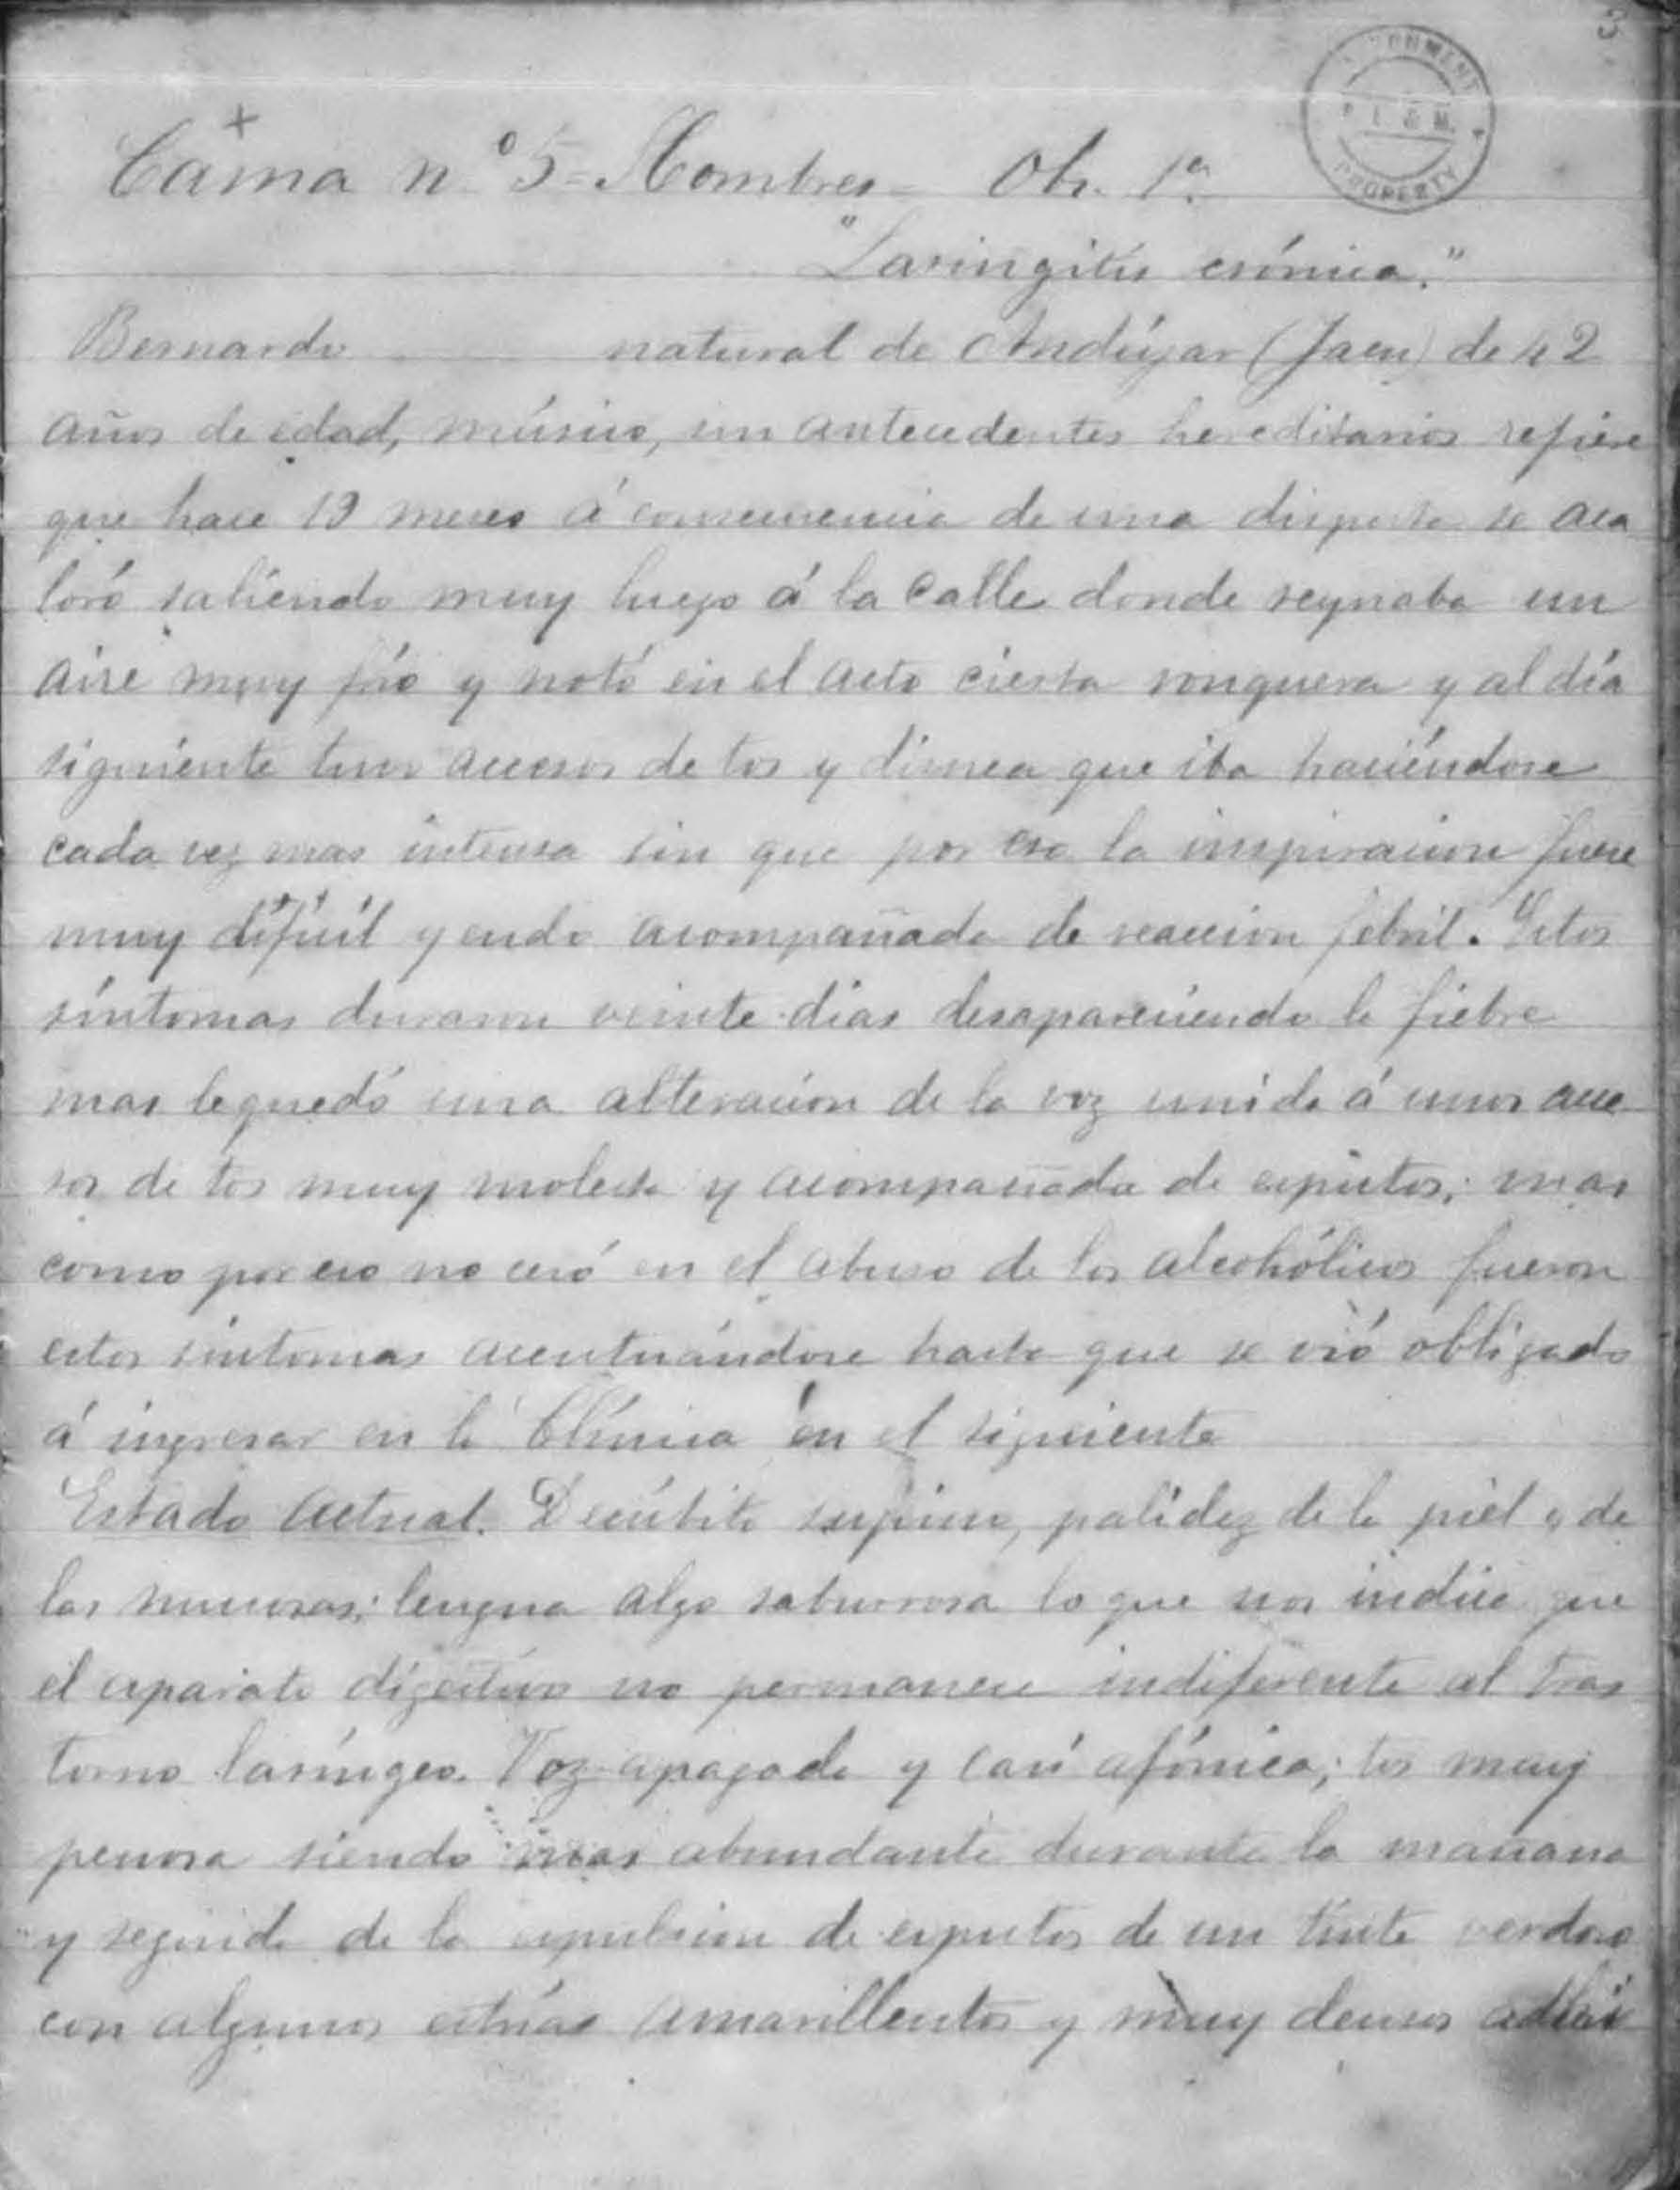 3
Cama nº 5 = Hombres = Ob. 1ª.
"Laringitis crónica."
Bernardo natural de Andújar (Jaen) de 42
años de edad, músico, sin antecedentes hereditarios refiere
que hace 13 meses á consecuencia de una disputa se aca
loró saliendo muy luego á la calle donde reynaba un
aire muy frío y notó en el acto cierta ronquera y al día
siguiente tuvo accesos de tos y disnea que iba haciéndose
cada vez mas intensa sin que por eso la inspiracion fuese
muy difícil yendo acompañada de reaccion febril. Estos
síntomas duraron veinte dias desapareciendo la fiebre
mas le quedó una alteracion de la voz unida á unos acce
sos de tos muy molesta y acompañada de esputos; mas
como por eso no cesó en el abuso de los alcohólicos fueron
estos síntomas acentuándose hasta que se vió obligado
á ingresar en la Clínica en el siguiente
Estado actual. Decúbito supino, palidez de la piel y de
las mucosas; lengua algo saburrosa lo que nos indica que
el aparato digestivo no permanece indiferente al tras
torno laríngeo. Voz apagada y casi afónica; tos muy
penosa siendo mas abundante durante la mañana
y seguida de la expulsion de esputos de un tinte verdoso
con algunas estrías amarillentas y muy densos
GOVERNMENT
P. I. & M.
PROPERTY